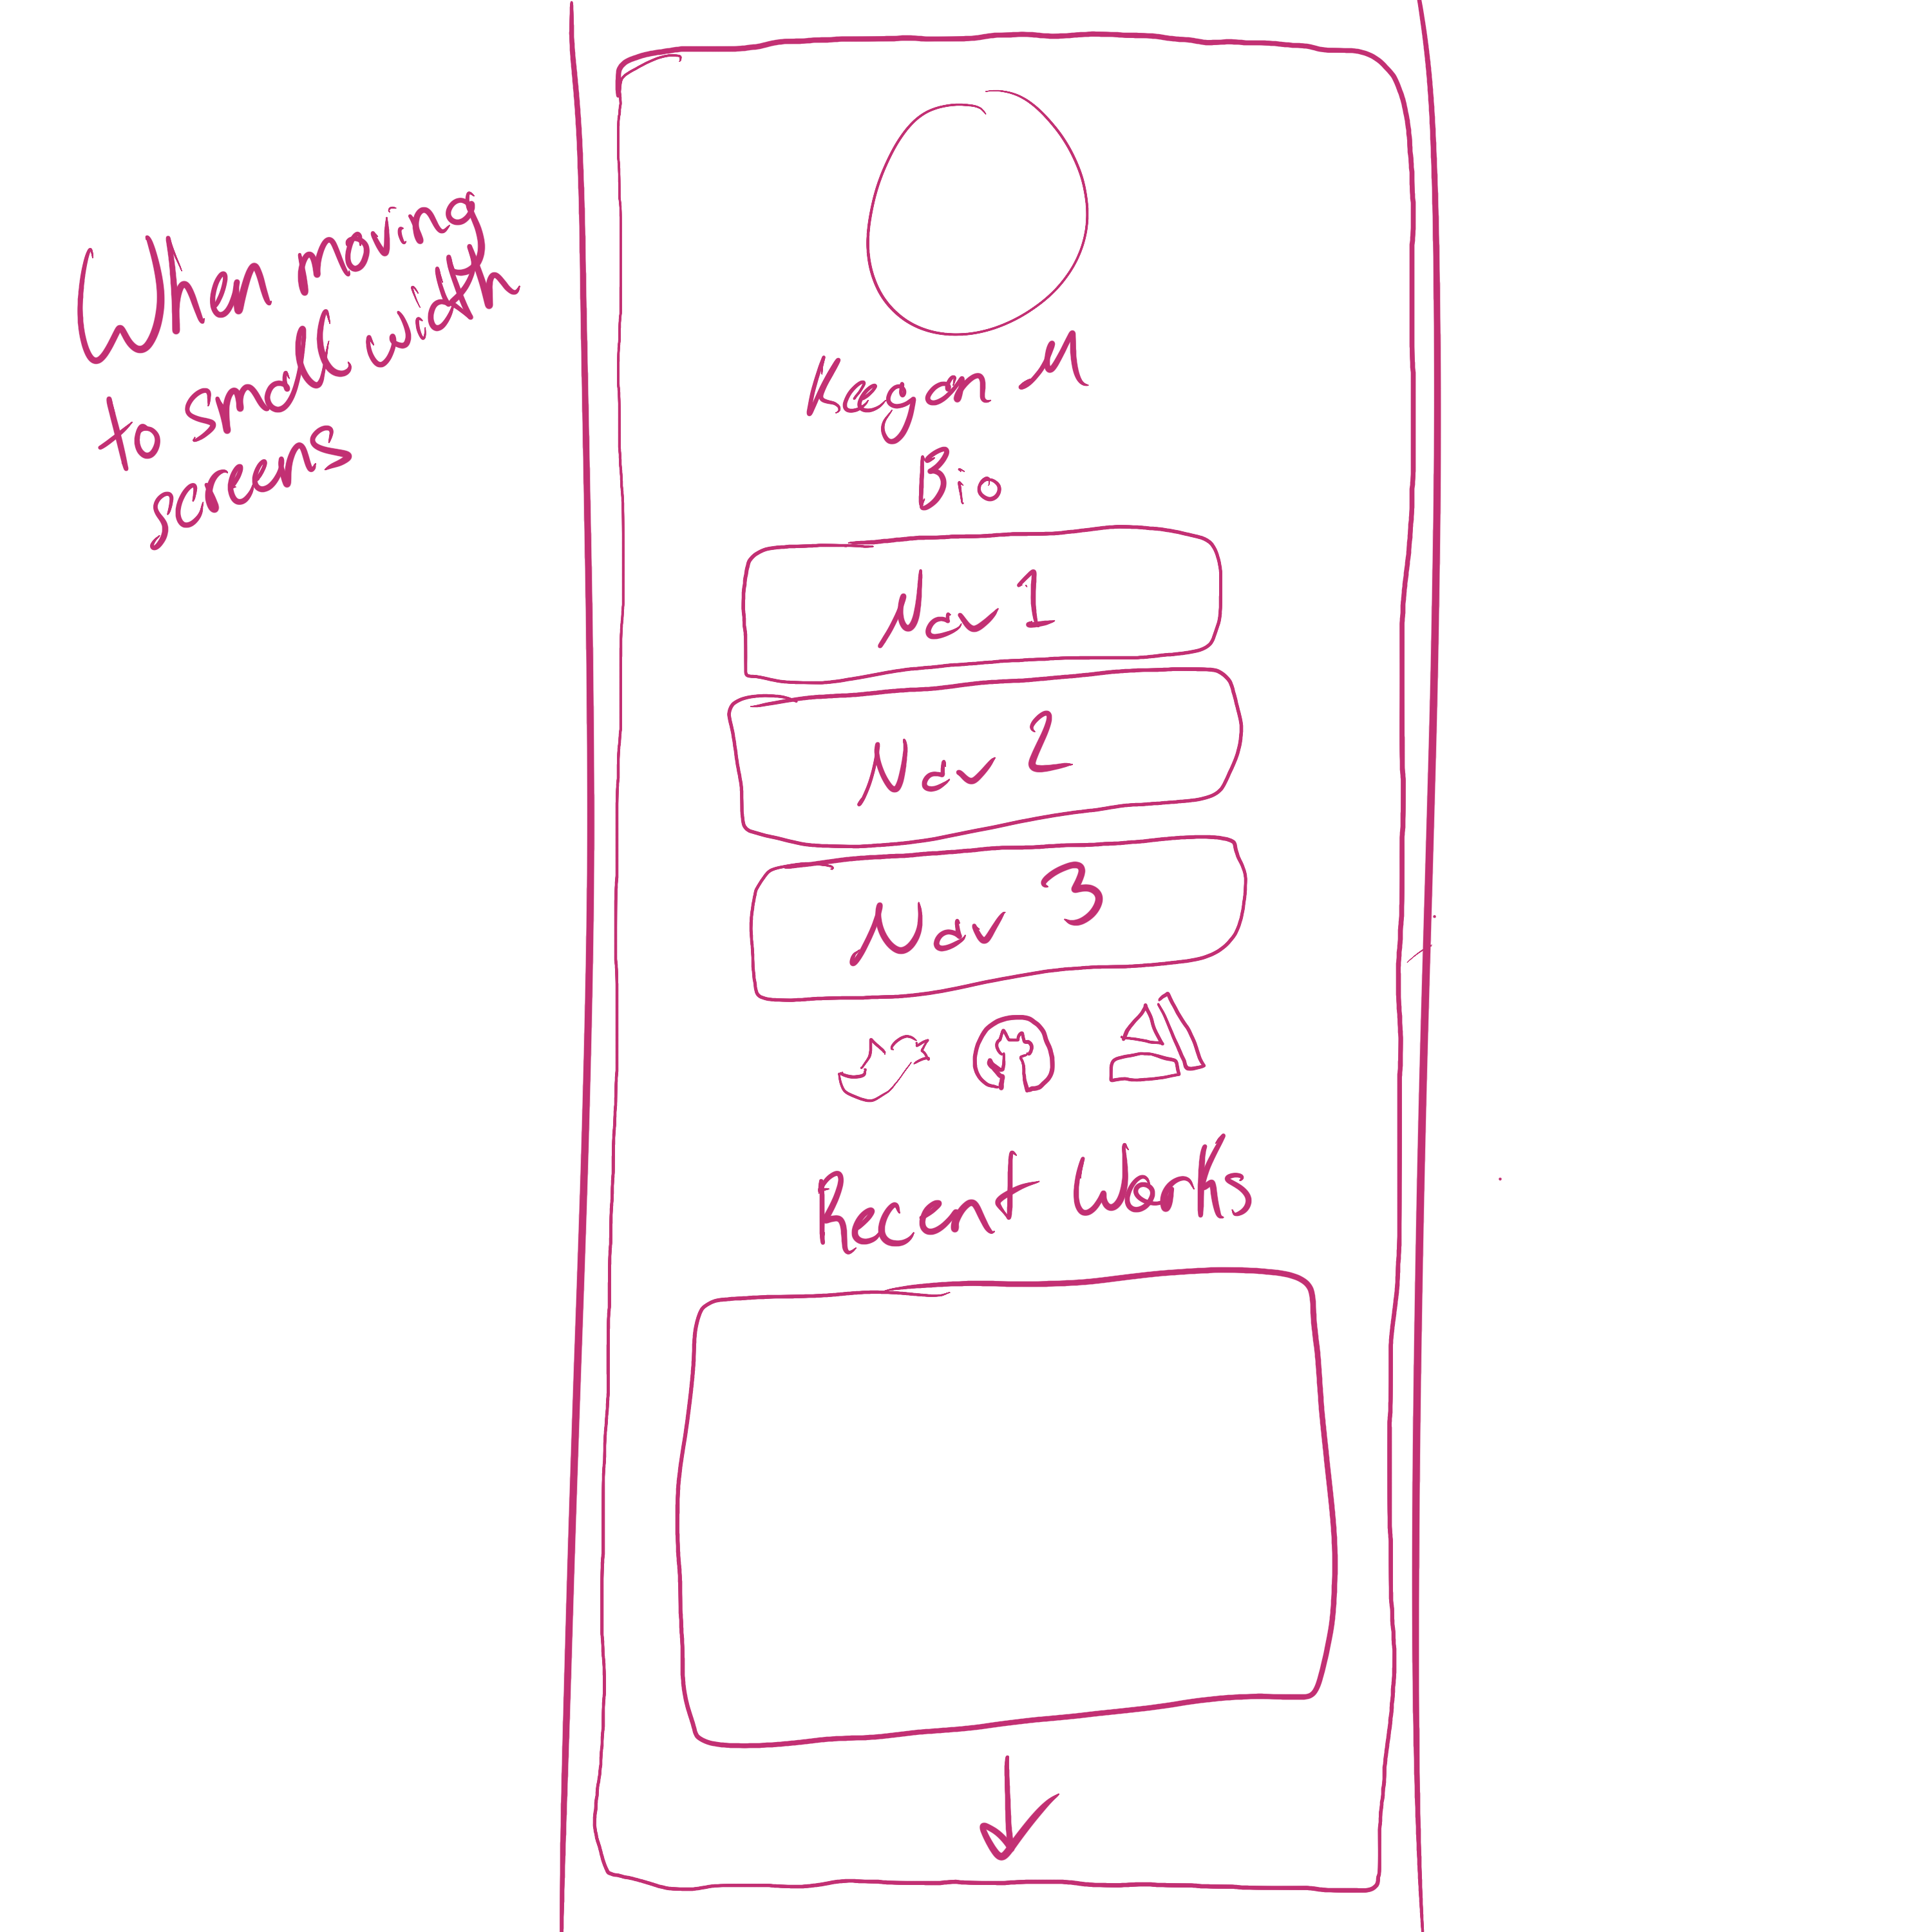 When moving
to small width
screens
Keegan M
Bio
Nav 1
Nav 2
Nav 3
Recent Works